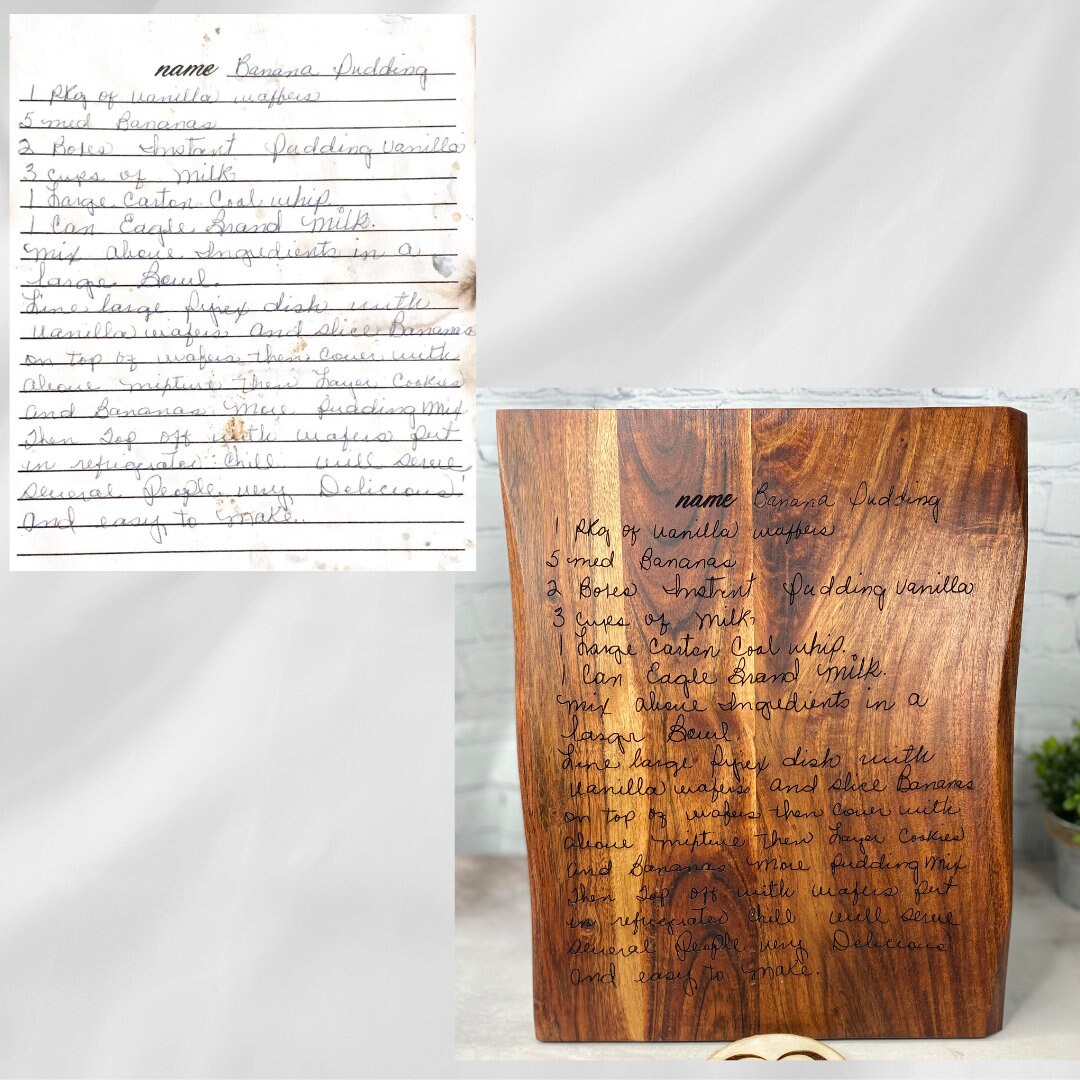 name Banana Pudding
1 Pkg of vanilla waffers
5 med Bananas
2 Boxes Instent Pudding vanilla
3 cups of Milk
1 Large Carton Cool whip.
1 Can Eagle Brand Milk.
Mix above Ingredients in a
large Bowl.
Line large pyrex dish with
vanilla wafers and slice Bananas
on top of wafers then cover with
above mixture Then Layer Cookies
and Bananas More Pudding Mix
Then Top off with wafers Put
in refrigerator Chill will serve
several People very Delicious!
and easy to make..
name Banana Pudding
1 Pkg of vanilla waffers
5 med Bananas
2 Boxes Instent Pudding vanilla
3 cups of Milk
1 Large Carton Cool whip.
1 Can Eagle Brand Milk.
Mix above Ingredients in a
large Bowl.
Line large pyrex dish with
vanilla wafers and slice Bananas
on top of wafers then cover with
above mixture then Layer Cookies
and Bananas More Pudding Mix
Then Top off with wafers Put
in refrigerator Chill will serve
several People very Delicious
and easy to make.